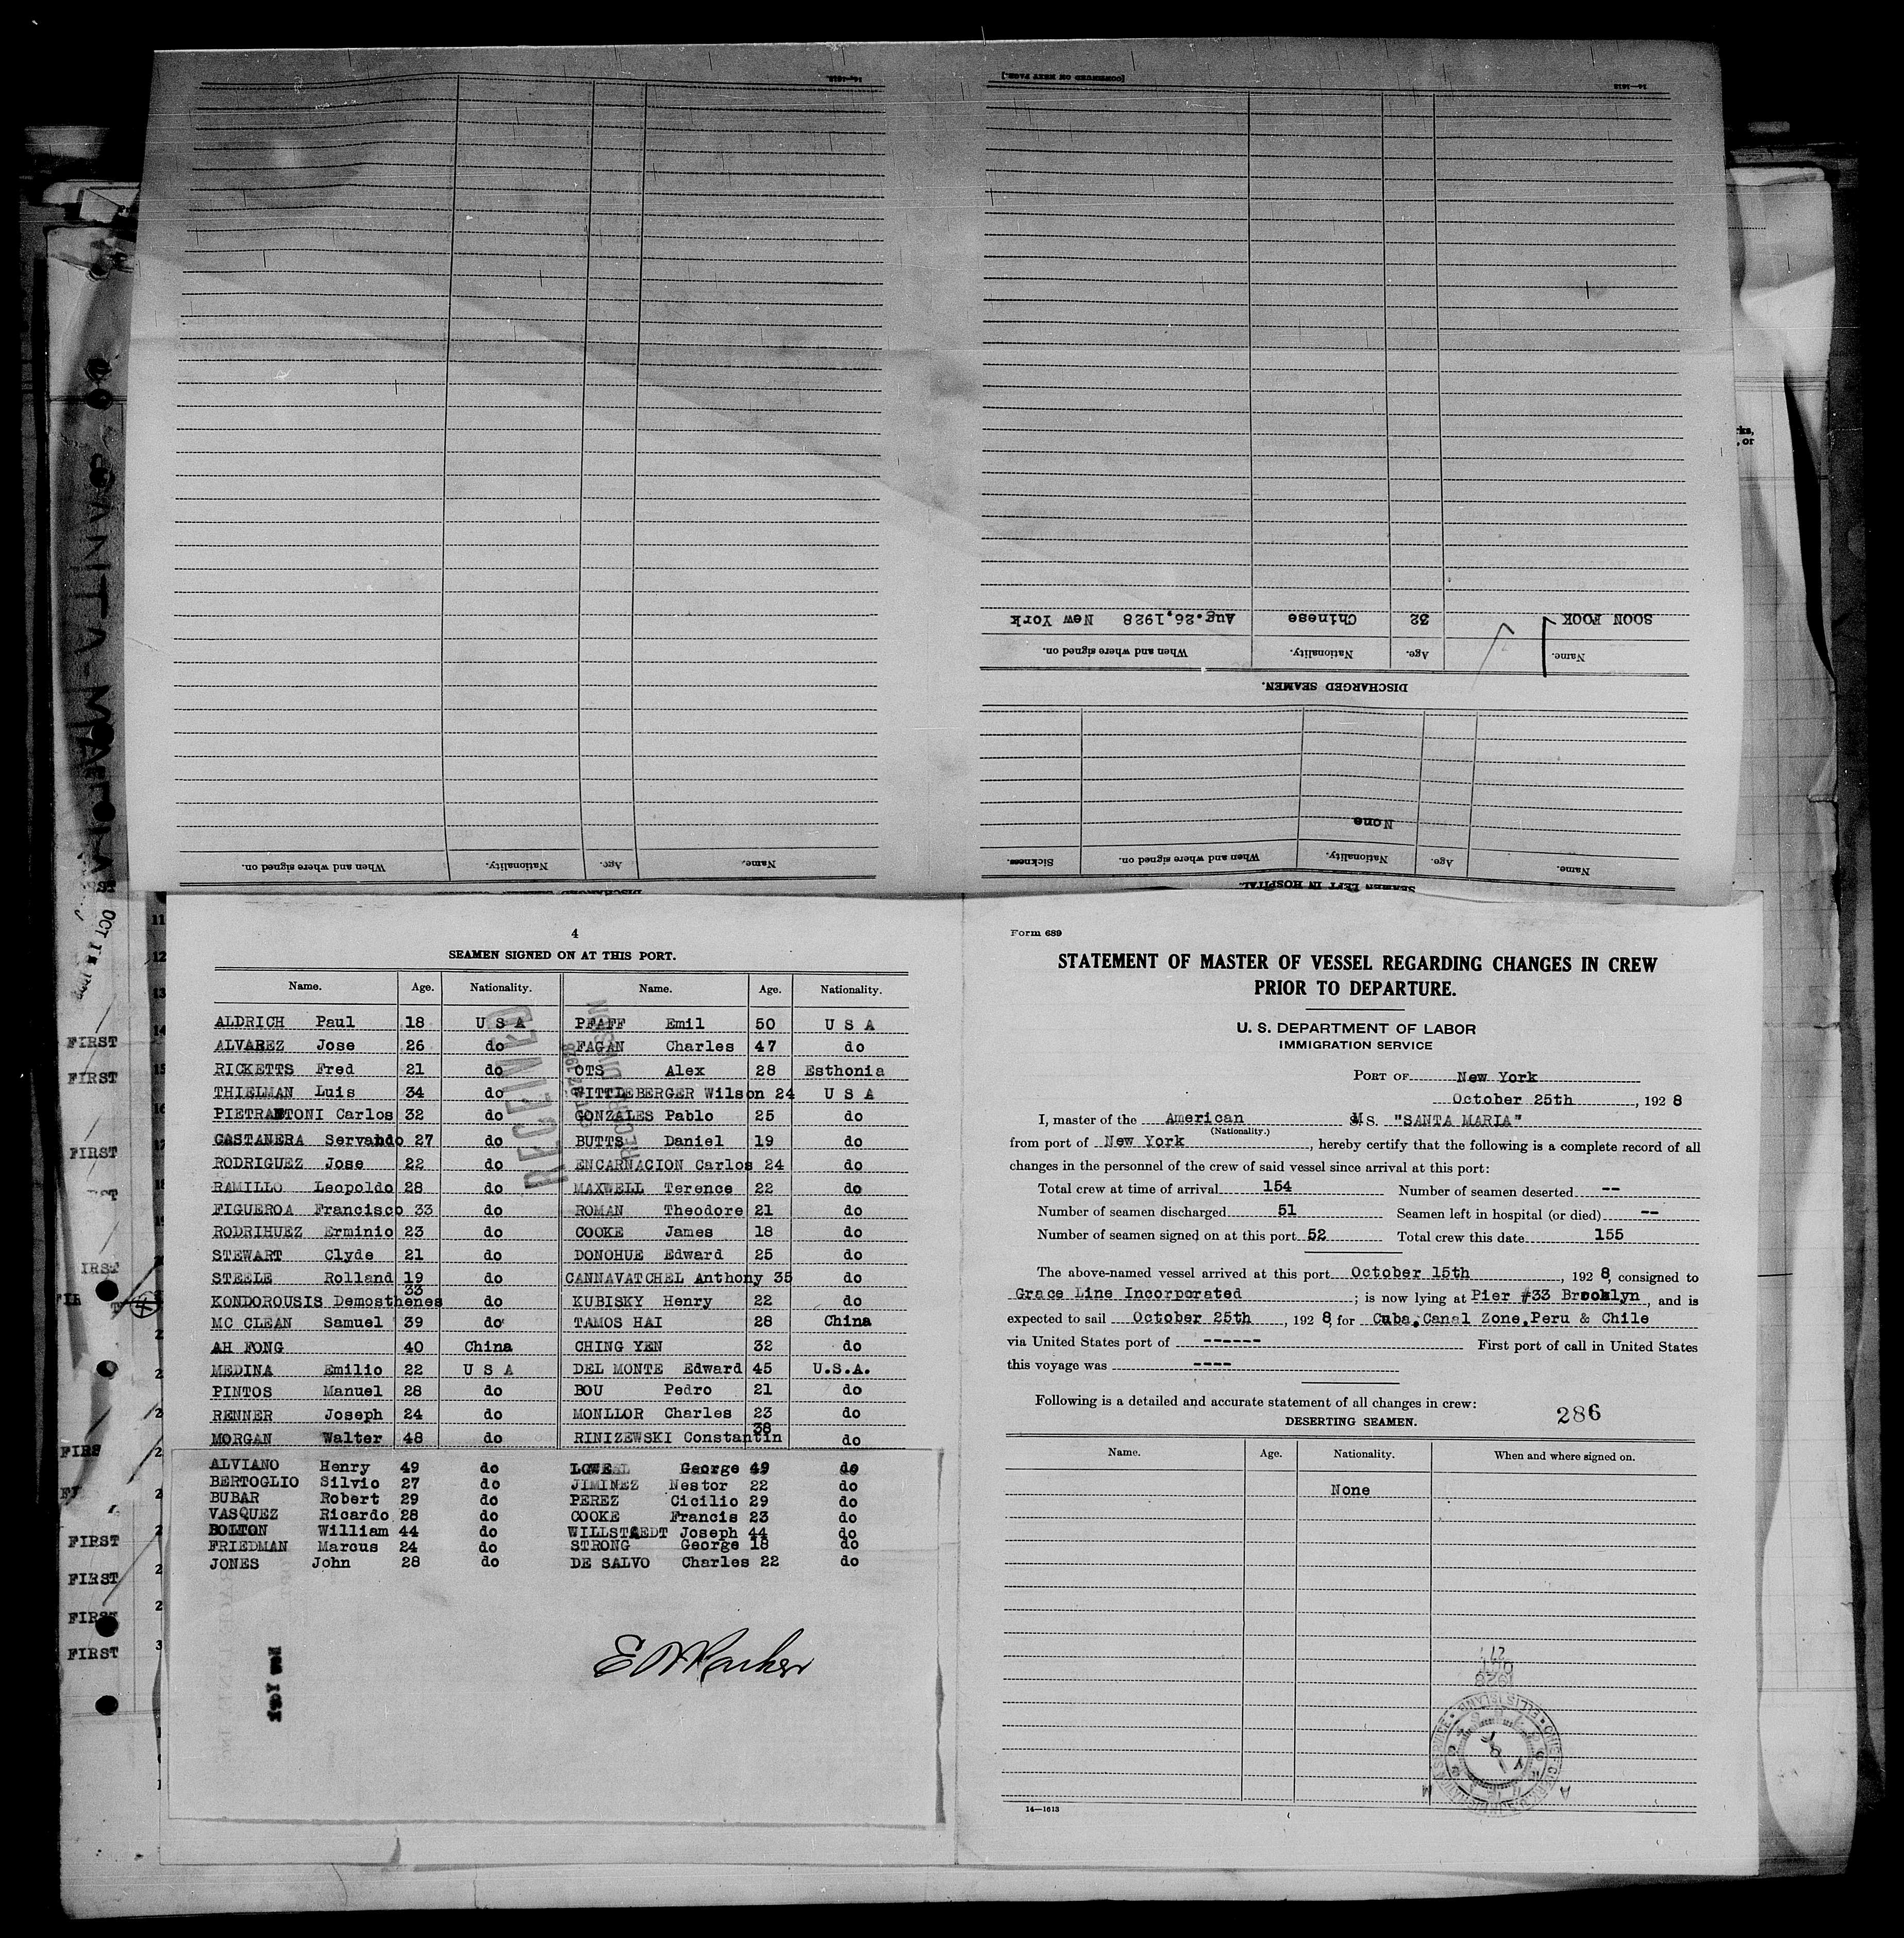 [CONTINUED ON NEXT PAGE.]
14—1613
14—1613
SOON FOOK 32 Chinese Aug.26,1928 New York
Name. Age. Nationality. When and where signed on.
DISCHARGED SEAMEN.
None
Name. Age. Nationality. When and where signed on. Sickness.
SEAMEN LEFT IN HOSPITAL.
Name. Age. Nationality. When and where signed on.
DISCHARGED SEAMEN
rks,
, or
SANTA-MARIA
OCT 15
FIRST
FIRST
FIRST
IRST
FIRS
FIRST
FIRST
FIRST
FIRST
4
SEAMEN SIGNED ON AT THIS PORT.
Name. Age. Nationality. Name. Age. Nationality.
ALDRICH Paul 18 U S A PFAFF Emil 50 U S A
ALVAREZ Jose 26 do FAGAN Charles 47 do
RICKETTS Fred 21 do OTS Alex 28 Esthonia
THIELMAN Luis 34 do WITTLEBERGER Wilson 24 U S A
PIETRANTONI Carlos 32 do GONZALES Pablo 25 do
CASTANERA Servando 27 do BUTTS Daniel 19 do
RODRIGUEZ Jose 22 do ENCARNACION Carlos 24 do
RAMILLO Leopoldo 28 do MAXWELL Terence 22 do
FIGUEROA Francisco 33 do ROMAN Theodore 21 do
RODRIHUEZ Erminio 23 do COOKE James 18 do
STEWART Clyde 21 do DONOHUE Edward 25 do
STEELE Rolland 19 do CANNAVATCHEL Anthony 35 do
KONDOROUSIS Demosthenes 33 do KUBISKY Henry 22 do
MC CLEAN Samuel 39 do TAMOS HAI 28 China
AH FONG 40 China CHING YEN 32 do
MEDINA Emilio 22 U S A DEL MONTE Edward 45 U.S.A.
PINTOS Manuel 28 do BOU Pedro 21 do
RENNER Joseph 24 do MONLLOR Charles 23 do
MORGAN Walter 48 do RINIZEWSKI Constantin 38 do
ALVIANO Henry 49 do LOWEEL George 49 do
BERTOGLIO Silvio 27 do JIMINEZ Nestor 22 do
BUBAR Robert 29 do PEREZ Cicilio 29 do
VASQUEZ Ricardo 28 do COOKE Francis 23 do
BOLTON William 44 do WILLSTAEDT Joseph 44 do
FRIEDMAN Marcus 24 do STRONG George 18 do
JONES John 28 do DE SALVO Charles 22 do
RECEIVED
RECORD DIVISION
E Parker
Form 689
STATEMENT OF MASTER OF VESSEL REGARDING CHANGES IN CREW
PRIOR TO DEPARTURE.
U. S. DEPARTMENT OF LABOR
IMMIGRATION SERVICE
PORT OF New York
October 25th, 1928
I, master of the American MS. "SANTA MARIA"
(Nationality.)
from port of New York, hereby certify that the following is a complete record of all
changes in the personnel of the crew of said vessel since arrival at this port:
Total crew at time of arrival 154 Number of seamen deserted --
Number of seamen discharged 51 Seamen left in hospital (or died) --
Number of seamen signed on at this port 52 Total crew this date 155
The above-named vessel arrived at this port October 15th, 1928, consigned to
Grace Line Incorporated; is now lying at Pier #33 Brooklyn, and is
expected to sail October 25th, 1928, for Cuba, Canal Zone, Peru & Chile
via United States port of ------ First port of call in United States
this voyage was ----
Following is a detailed and accurate statement of all changes in crew:
DESERTING SEAMEN.
286
Name. Age. Nationality. When and where signed on.
None
14—1613